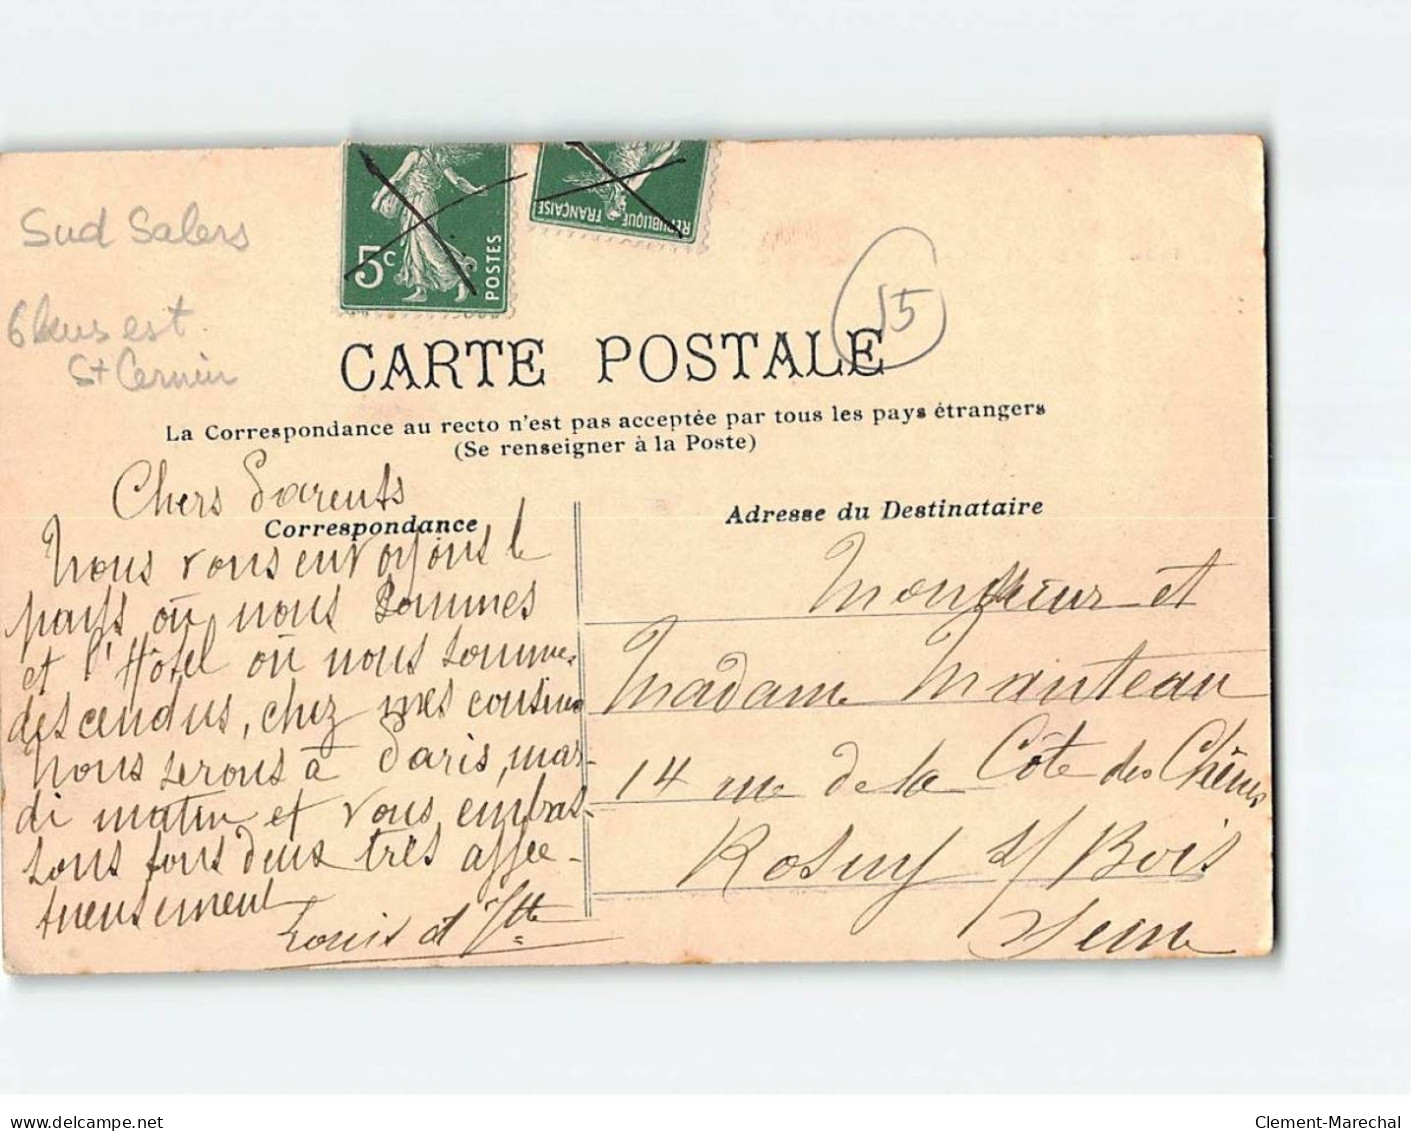 Sud Salers
6 kms est
St Cernin
5c
POSTES
REPUBLIQUE FRANÇAISE
15
CARTE POSTALE
La Correspondance au recto n'est pas acceptée par tous les pays étrangers
(Se renseigner à la Poste)
Correspondance
Chers Parents
Nous vous envoyons le
pays où nous sommes
et l'Hôtel où nous sommes
descendus, chez mes cousins
Nous serons à Paris, mar-
di matin et vous embras-
sons tous deux très affec-
tueusement
Louis et
Adresse du Destinataire
Monsieur et
Madame Manteau
14 rue de la Côte des Chênes
Rosny s/ Bois
Seine
delcampe.net
Clement-Marechal